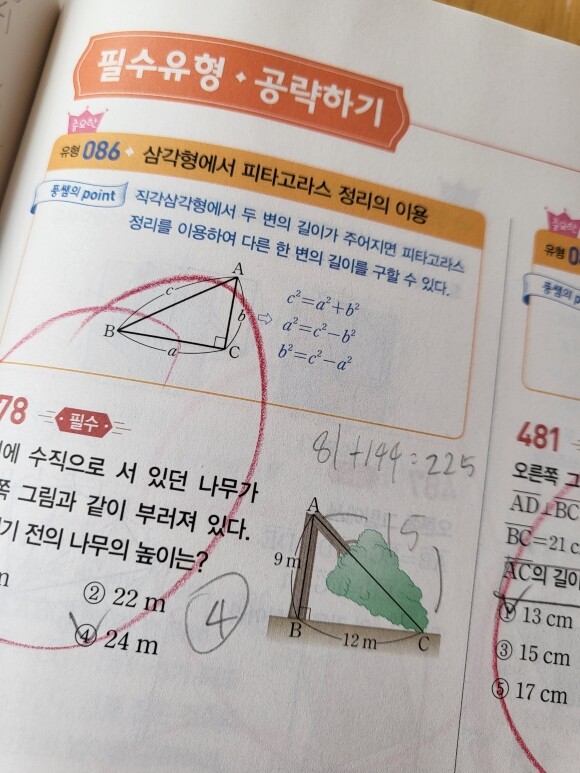 필수유형 • 공략하기
중요한
유형 086 • 삼각형에서 피타고라스 정리의 이용
풍쌤의 point
직각삼각형에서 두 변의 길이가 주어지면 피타고라스
정리를 이용하여 다른 한 변의 길이를 구할 수 있다.
A
c
b
B
a
C
⇨
c²=a²+b²
a²=c²-b²
b²=c²-a²
78 필수
에 수직으로 서 있던 나무가
쪽 그림과 같이 부러져 있다.
기 전의 나무의 높이는?
② 22 m
④ 24 m
④
81+144=225
15
A
9 m
B
12 m
C
중요한
유형 0
풍쌤의 p
481
오른쪽 그
AD⊥BC
BC=21 c
AC의 길이
① 13 cm
③ 15 cm
⑤ 17 cm